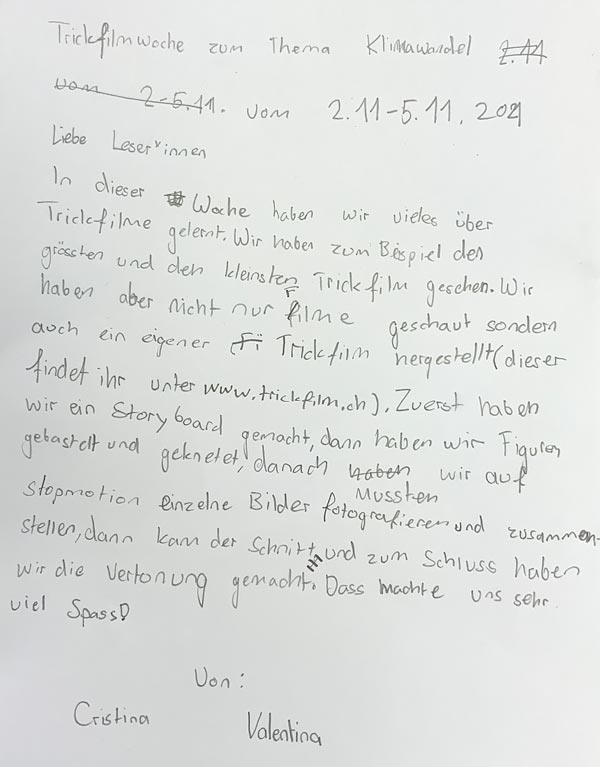 Trickfilmwoche zum Thema Klimawandel 2.11
vom 2-5.11. vom 2.11-5.11.2021
Liebe Leser*innen
In dieser Woche haben wir vieles über
Trickfilme gelernt. Wir haben zum Beispiel den
grössten und den kleinsten Trickfilm gesehen. Wir
haben aber nicht nur filme geschaut sondern
auch ein eigener Fi Trickfilm hergestellt (dieser
findet ihr unter www.trickfilm.ch). Zuerst haben
wir ein Storyboard gemacht, dann haben wir Figuren
gebastelt und geknetet, danach haben mussten wir auf
stopmotion einzelne Bilder fotografieren und zusammen-
stellen, dann kam der Schnitt und zum Schluss haben
wir die Vertonung gemacht. Dass machte uns sehr
viel Spass!
Von:
Cristina Valentina